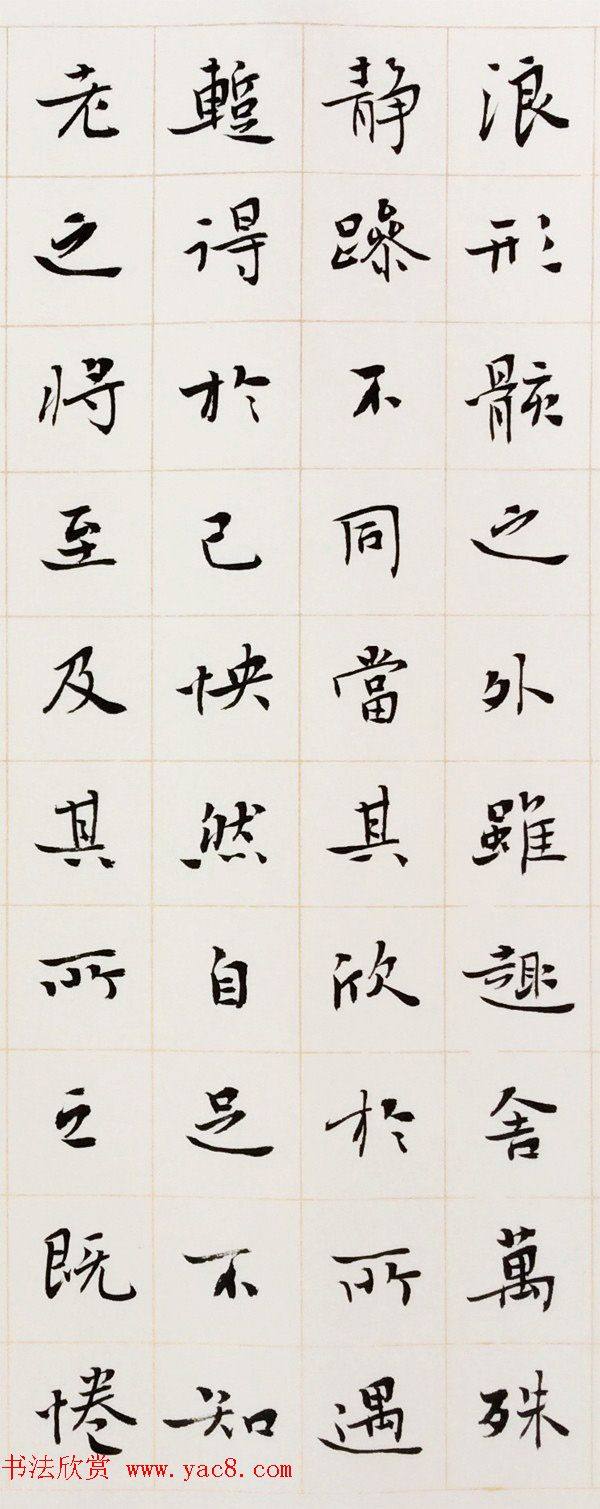 浪形骸之外雖趣舍萬殊
静躁不同當其欣於所遇
蹔得於己怏然自足不知
老之將至及其所之既惓
书法欣赏 www.yac8.com